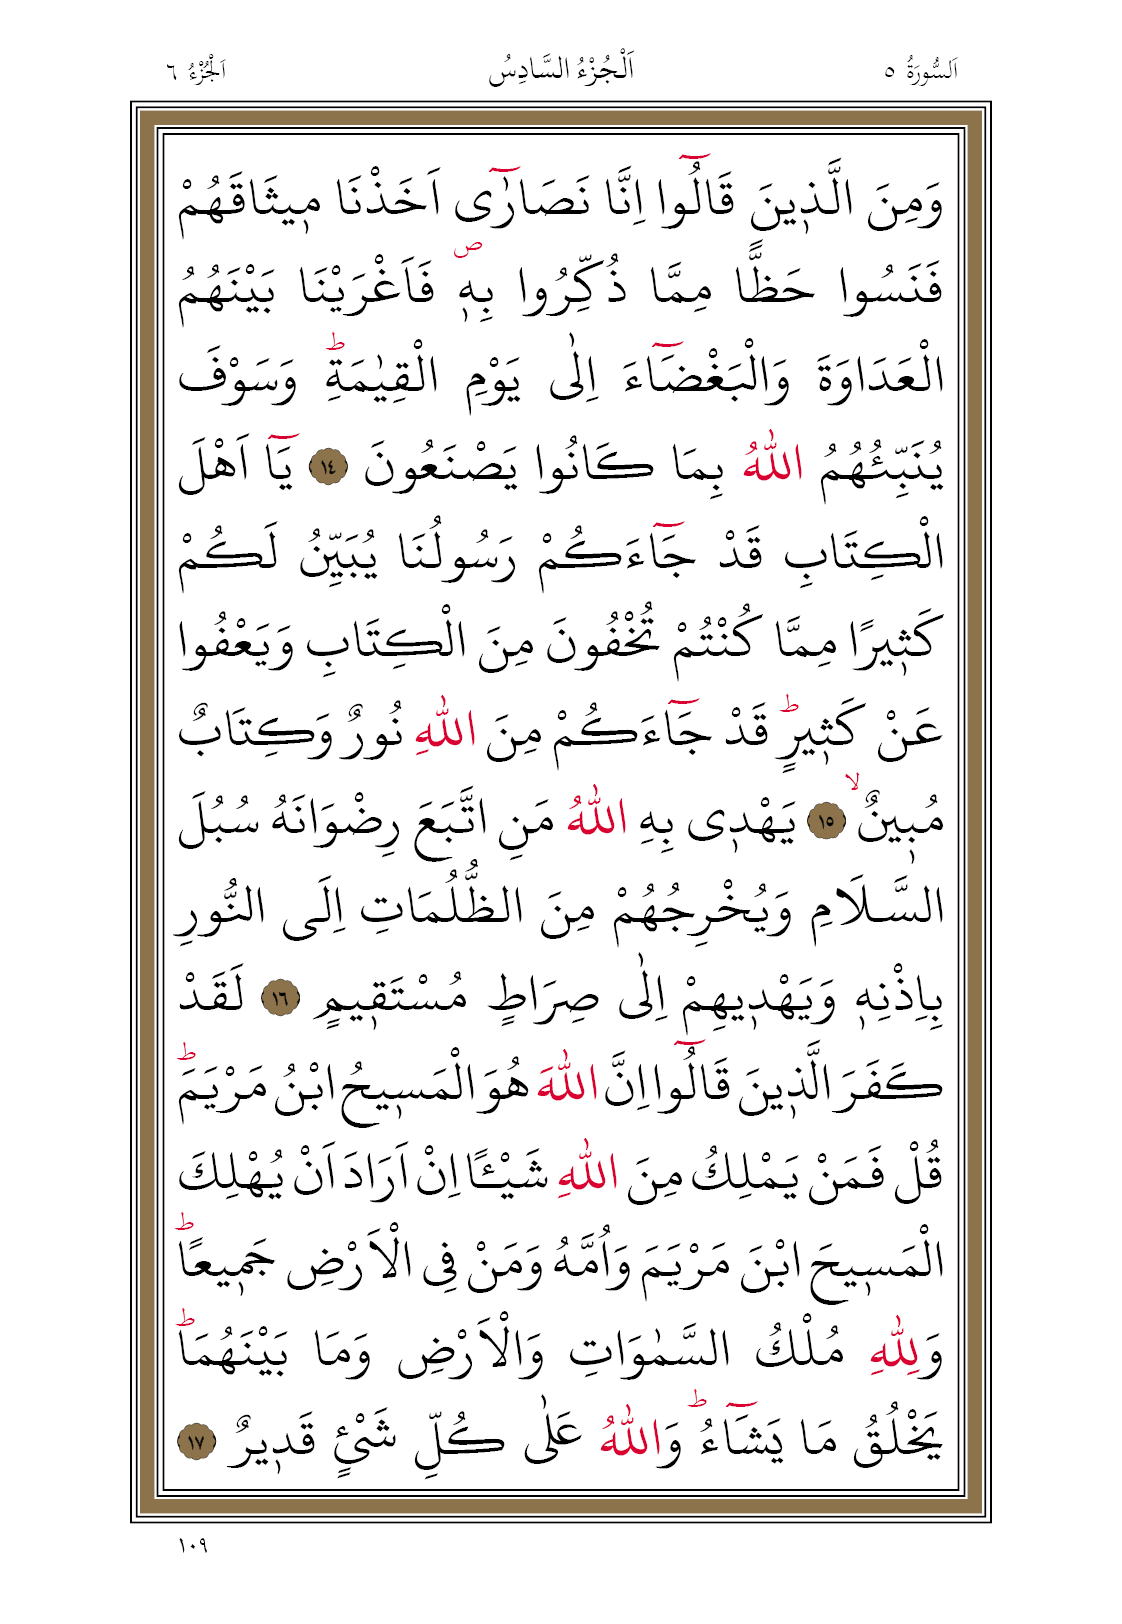 اَلسُّورَةُ ٥
اَلْجُزْءُ السَّادِسُ
اَلْجُزْءُ ٦
وَمِنَ الَّذ۪ينَ قَالُٓوا اِنَّا نَصَارٰٓى اَخَذْنَا م۪يثَاقَهُمْ
فَنَسُوا حَظًّا مِمَّا ذُكِّرُوا بِه۪ۖ فَاَغْرَيْنَا بَيْنَهُمُ
الْعَدَاوَةَ وَالْبَغْضَٓاءَ اِلٰى يَوْمِ الْقِيٰمَةِۜ وَسَوْفَ
يُنَبِّئُهُمُ اللّٰهُ بِمَا كَانُوا يَصْنَعُونَ ١٤ يَٓا اَهْلَ
الْكِتَابِ قَدْ جَٓاءَكُمْ رَسُولُنَا يُبَيِّنُ لَكُمْ
كَث۪يرًا مِمَّا كُنْتُمْ تُخْفُونَ مِنَ الْكِتَابِ وَيَعْفُوا
عَنْ كَث۪يرٍۜ قَدْ جَٓاءَكُمْ مِنَ اللّٰهِ نُورٌ وَكِتَابٌ
مُب۪ينٌۙ ١٥ يَهْد۪ى بِهِ اللّٰهُ مَنِ اتَّبَعَ رِضْوَانَهُ سُبُلَ
السَّلَامِ وَيُخْرِجُهُمْ مِنَ الظُّلُمَاتِ اِلَى النُّورِ
بِاِذْنِه۪ وَيَهْد۪يهِمْ اِلٰى صِرَاطٍ مُسْتَق۪يمٍ ١٦ لَقَدْ
كَفَرَ الَّذ۪ينَ قَالُٓوا اِنَّ اللّٰهَ هُوَ الْمَس۪يحُ ابْنُ مَرْيَمَۜ
قُلْ فَمَنْ يَمْلِكُ مِنَ اللّٰهِ شَيْـًٔا اِنْ اَرَادَ اَنْ يُهْلِكَ
الْمَس۪يحَ ابْنَ مَرْيَمَ وَاُمَّهُ وَمَنْ فِى الْاَرْضِ جَم۪يعًاۜ
وَلِلّٰهِ مُلْكُ السَّمٰوَاتِ وَالْاَرْضِ وَمَا بَيْنَهُمَاۜ
يَخْلُقُ مَا يَشَٓاءُۜ وَاللّٰهُ عَلٰى كُلِّ شَىْءٍ قَد۪يرٌ ١٧
١٠٩